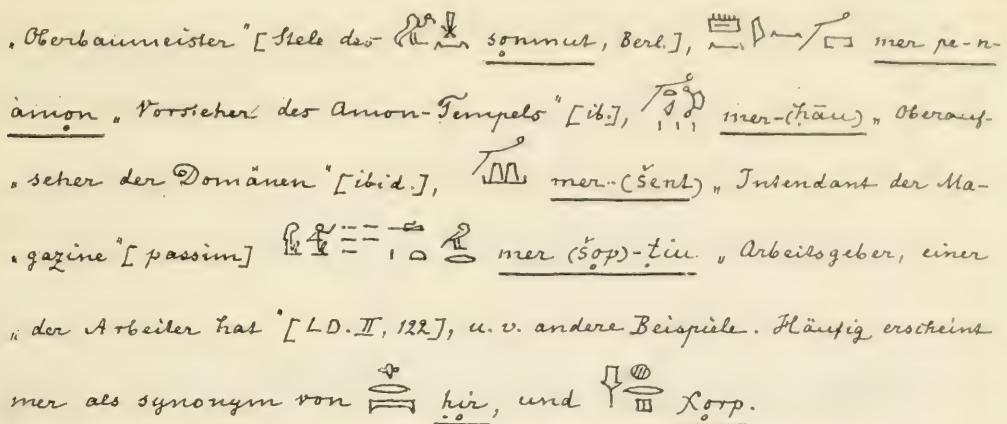 „Oberbaumeister“ [Stele des sonmut, Berl.], mer pe-n-
ȧmon „Vorsteher des Amon-Tempels“ [ib.], mer-(ḥāu) „Oberauf-
„seher der Domänen“ [ibid.], mer-(šent) „Intendant der Ma-
„gazine“ [passim] mer (šop)-tiu „Arbeitsgeber, einer
„der Arbeiter hat“ [LD. II, 122], u. v. andere Beispiele. Häufig erscheint
mer als synonym von ḥir, und χorp.